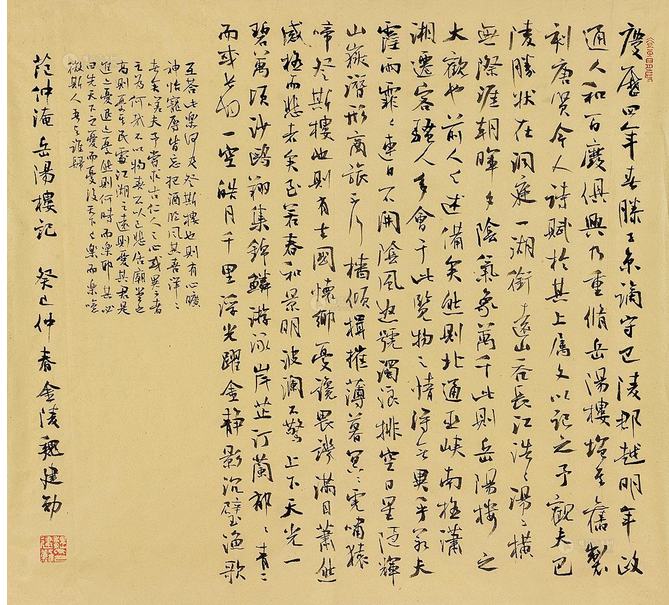 慶曆四年春滕子京謫守巴陵郡越明年政
通人和百廢俱興乃重脩岳陽樓增其舊製
刻唐賢今人詩賦於其上屬文以記之予觀夫巴
陵勝狀在洞庭一湖銜遠山吞長江浩浩湯湯橫
無際涯朝暉夕陰氣象萬千此則岳陽樓之
大觀也前人之述備矣然則北通巫峽南極瀟
湘遷客騷人多會于此覽物之情得無異乎若夫
霪雨霏霏連日不開陰風怒號濁浪排空日星隱輝
山嶽潛形商旅不行檣傾楫摧薄暮冥冥虎嘯猿
啼登斯樓也則有去國懷鄉憂讒畏譏滿目蕭然
感極而悲者矣至若春和景明波瀾不驚上下天光一
碧萬頃沙鷗翔集錦鱗游泳岸芷汀蘭郁郁青青
而或長煙一空皓月千里浮光躍金靜影沉璧漁歌
互答此樂何極登斯樓也則有心曠
神怡寵辱皆忘把酒臨風其喜洋洋
者矣嗟夫予嘗求古仁人之心或異二者
之為何哉不以物喜不以己悲居廟堂之
高則憂其民處江湖之遠則憂其君是
進亦憂退亦憂然則何時而樂耶其必
曰先天下之憂而憂後天下之樂而樂噫
微斯人吾誰歸
范仲淹岳陽樓記 癸巳仲春金陵魏建勋